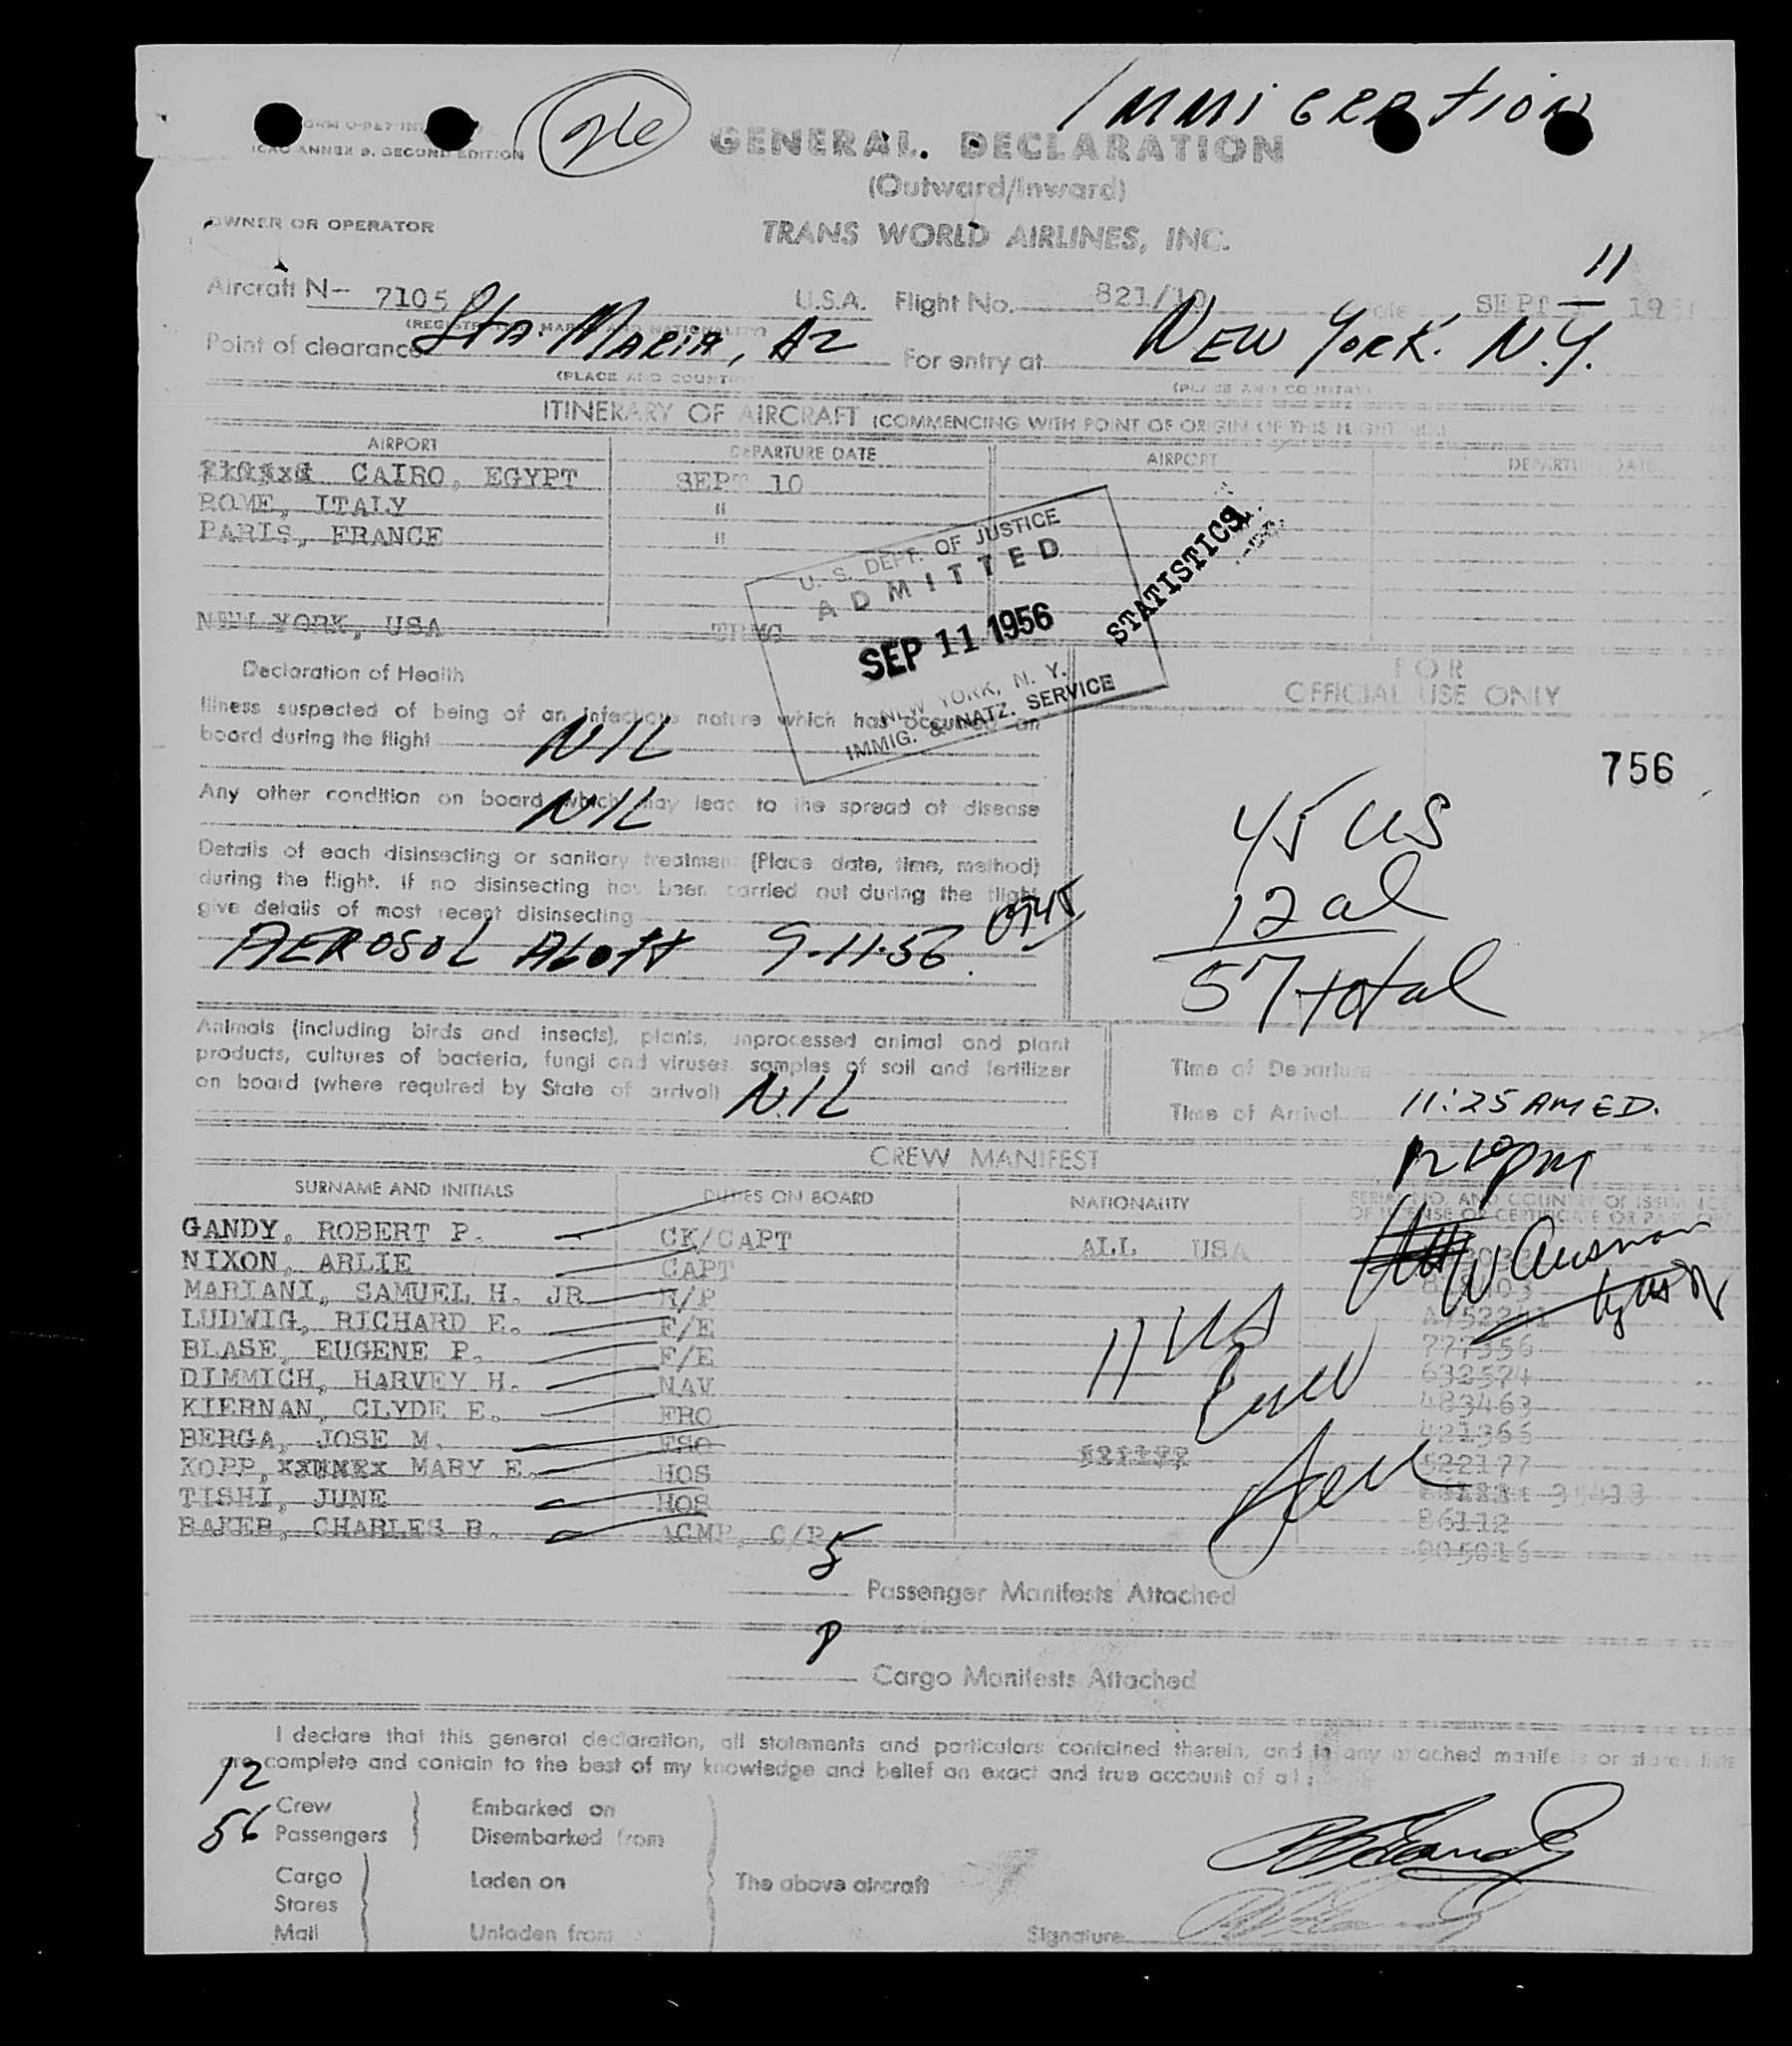 IMMIGRATION
ICAO ANNEX 9. SECOND EDITION
GENERAL DECLARATION
(Outward/Inward)
OWNER OR OPERATOR
TRANS WORLD AIRLINES, INC.
Aircraft N- 7105 U.S.A. Flight No. 821/10 SEPT 11
Point of clearance Sta. MARIA, AZ For entry at NEW YORK. N.Y.
(PLACE AND COUNTRY) (PLACE AND COUNTRY)
ITINERARY OF AIRCRAFT (COMMENCING WITH POINT OF ORIGIN OF THIS FLIGHT
AIRPORT DEPARTURE DATE AIRPORT DEPARTURE DATE
CAIRO, EGYPT SEPT 10
ROME, ITALY "
PARIS, FRANCE "
NEW YORK, USA
U. S. DEPT. OF JUSTICE
ADMITTED
SEP 11 1956
NEW YORK, N. Y.
IMMIG. & NATZ. SERVICE
STATISTICS
Declaration of Health
FOR
OFFICIAL USE ONLY
Illness suspected of being of an infectious nature which has occurred on
board during the flight NIL
756
Any other condition on board which may lead to the spread of disease
NIL
45 US
12 al
57 total
Details of each disinsecting or sanitary treatment (Place date, time, method)
during the flight. If no disinsecting has been carried out during the flight
give details of most recent disinsecting
AEROSOL Aloft 9-11-56. 0745
Animals (including birds and insects), plants, unprocessed animal and plant
products, cultures of bacteria, fungi and viruses, samples of soil and fertilizer
on board (where required by State of arrival) NIL
Time of Departure
Time of Arrival 11:25 AM ED.
CREW MANIFEST
SURNAME AND INITIALS DUTIES ON BOARD NATIONALITY
GANDY, ROBERT P. CK/CAPT ALL USA
NIXON, ARLIE CAPT
MARIANI, SAMUEL H. JR
LUDWIG, RICHARD E. F/E 777356
BLASE, EUGENE P. F/E 632574
DIMMICH, HARVEY H. NAV 483463
KIERNAN, CLYDE E. FRO 421366
BERGA, JOSE M. FSO 522177
KOPP, MARY E. HOS
TISHI, JUNE HOS 86112
BAKER, CHARLES B. 905016
11 US
Crew
5 Passenger Manifests Attached
Cargo Manifests Attached
I declare that this general declaration, all statements and particulars contained therein, and in any attached manifests or stores lists
are complete and contain to the best of my knowledge and belief an exact and true account of all:
12 Crew Embarked on
56 Passengers Disembarked from
Cargo Laden on The above aircraft
Stores
Mail Unladen from Signature